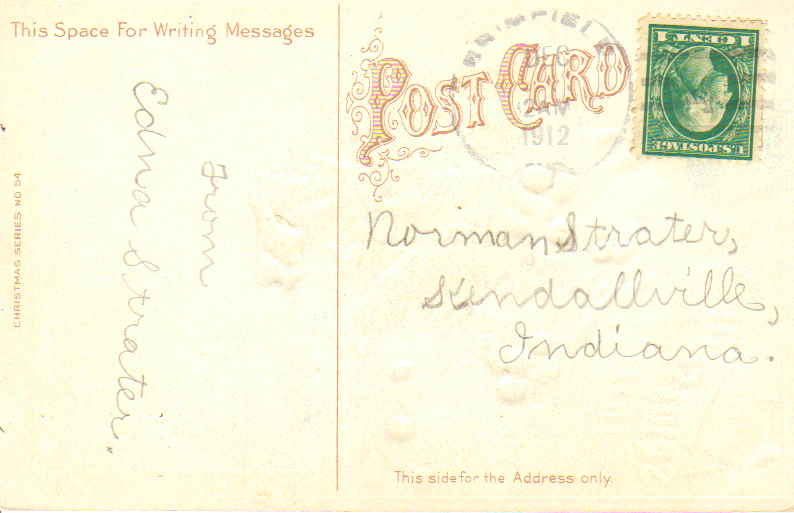 This Space For Writing Messages
POST CARD
DEC
1912
1 CENT 1
U.S. POSTAGE
From
Edna Strater.
CHRISTMAS SERIES NO 54
Norman Strater,
Kendallville,
Indiana.
This side for the Address only.